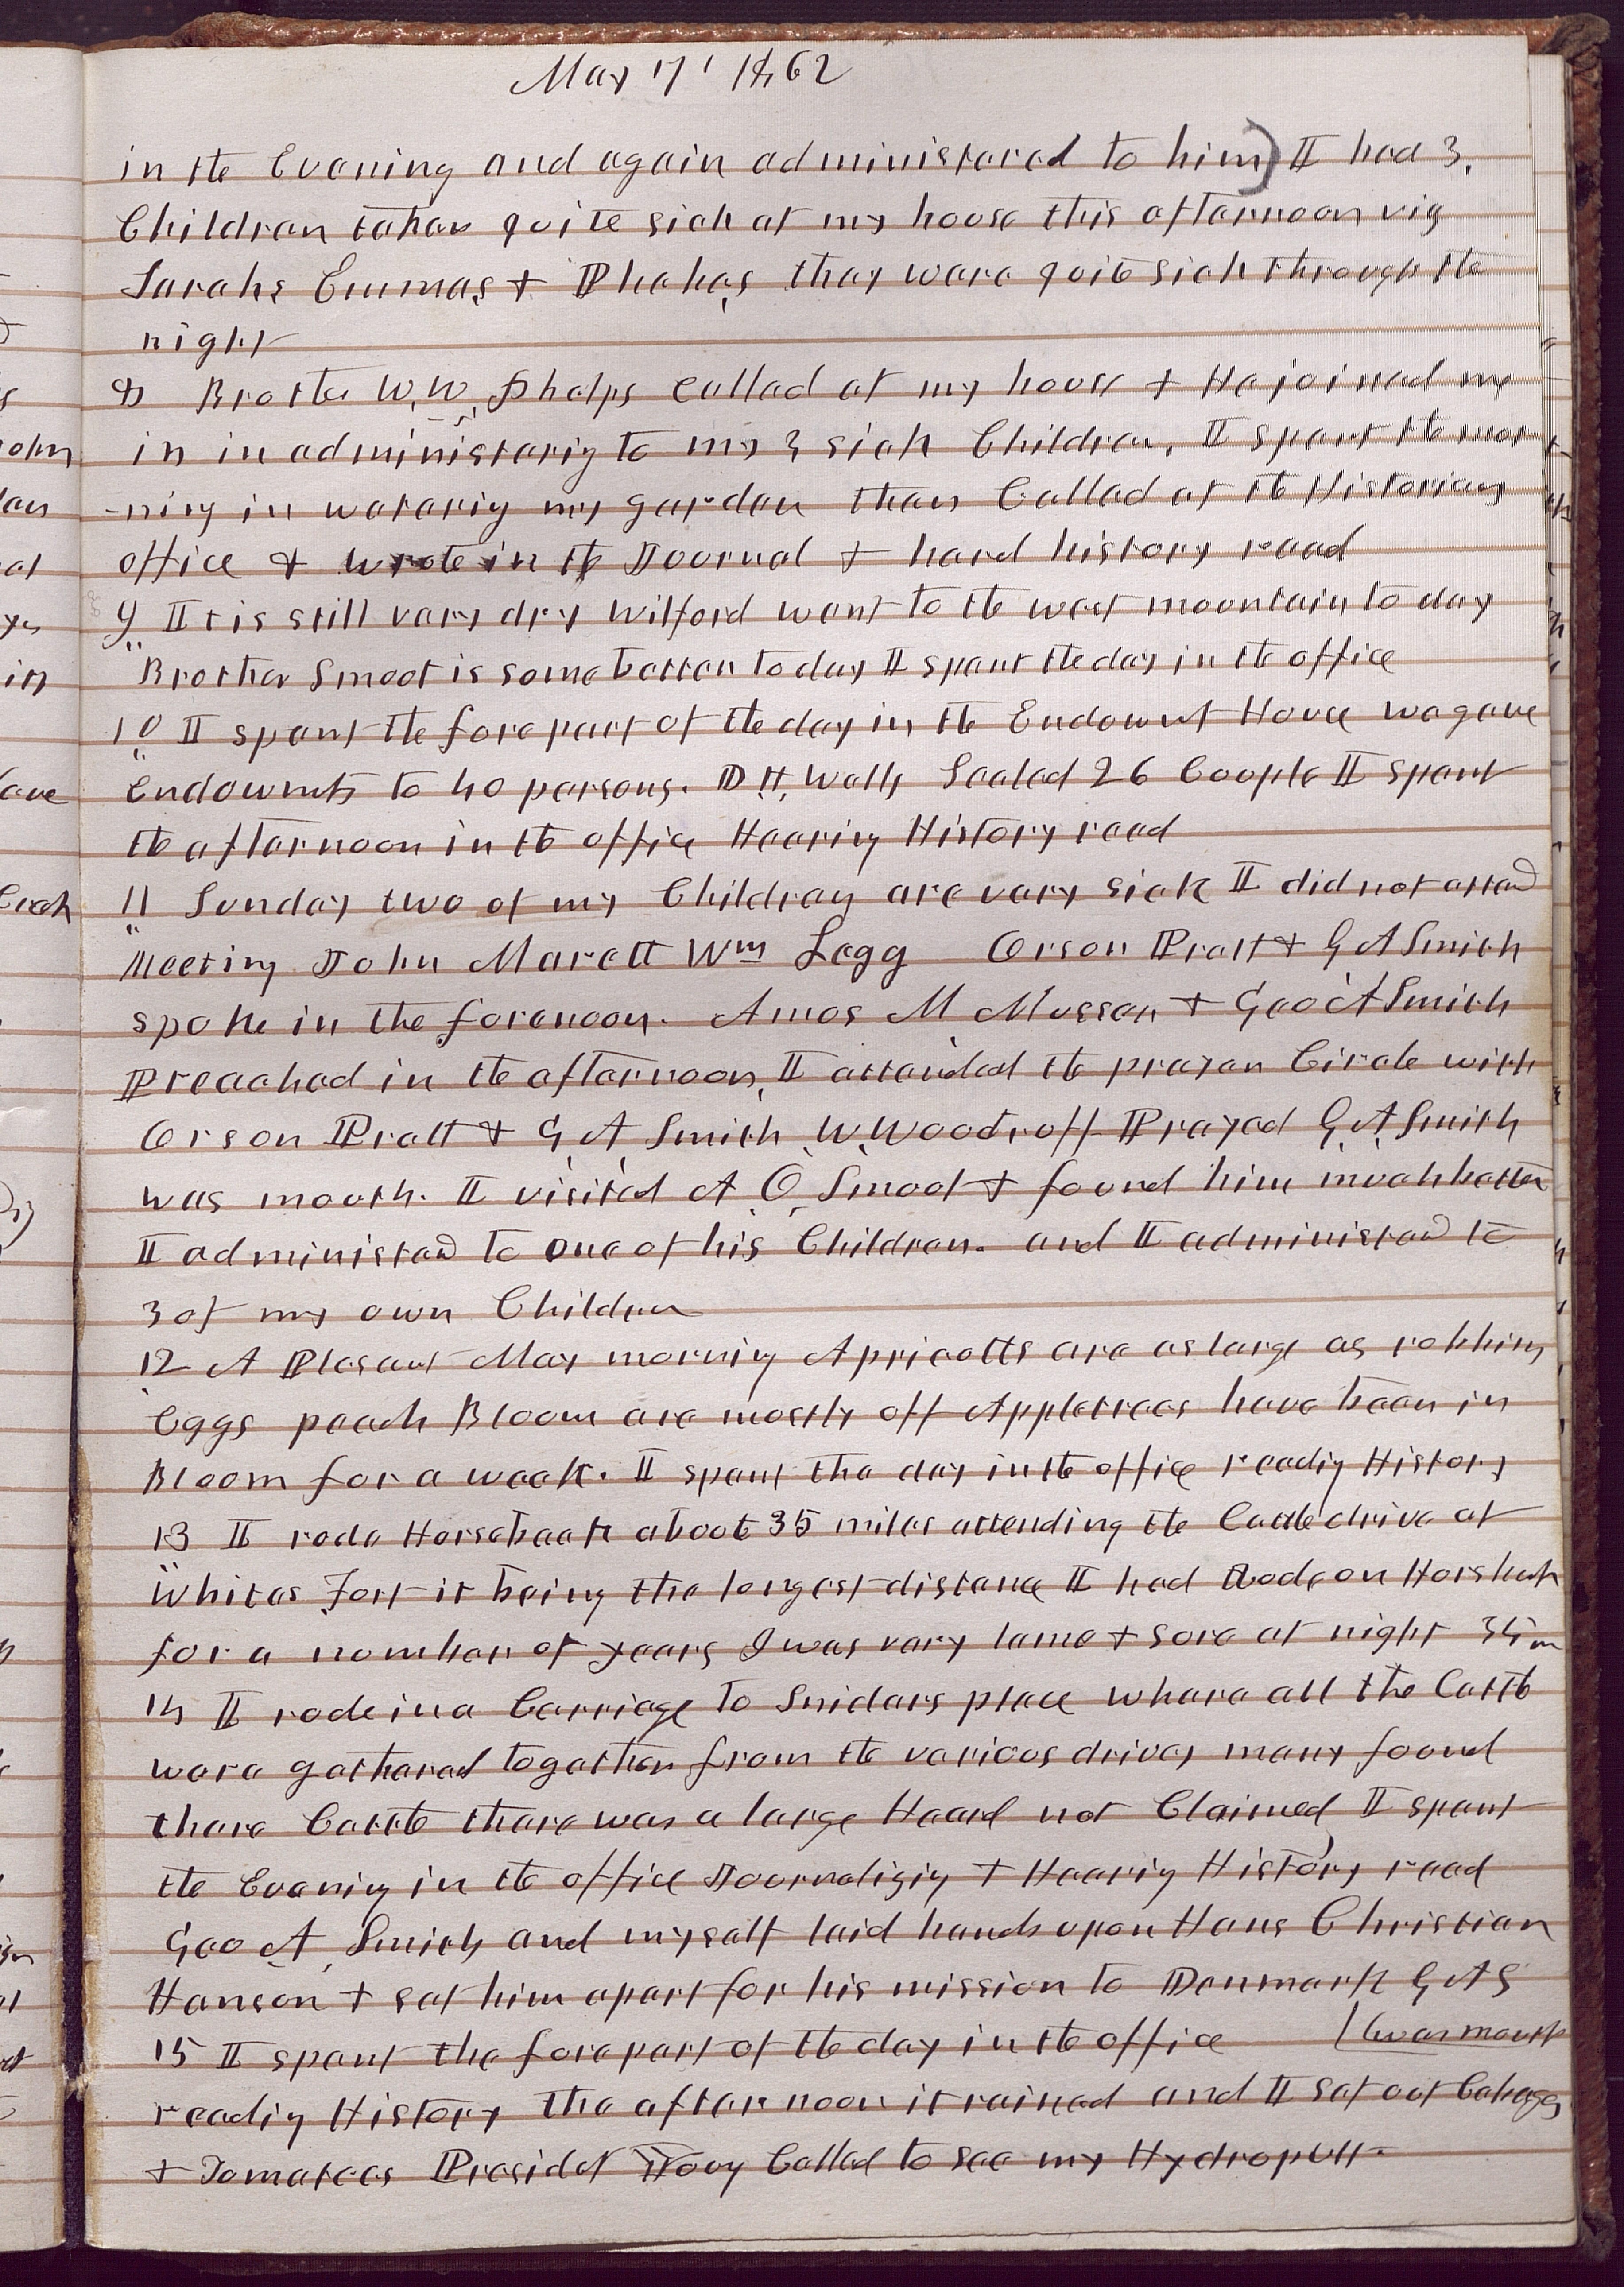 May 7th 1862
in the Evening and again administered to him) I had 3.
Children taken quite sick at my house this afternoon viz
Sarahs Emmas & Phebes they ware quite sick through the
night
8 Brother W. W. Phelps Called at my house & He joined me
in in administerig to my 3 sick Children, I spent the mor
-ning in waterig my garden then Called at the Historians
office & wrote in the Journal & hard history read
9 It is still very dry Wilford went to the west mountain to day
Brother Smoot is some better to day I spent the day in the office
10 I spent the fore part of the day in the Endowmt House we gave
Endowmts to 40 persons. D. H. Wells Sealed 26 Couple I spent
the afternoon in the office Hearing History read
11 Sunday two of my Children are very sick I did not attend
Meeting John Marett Wm Legg Orson Pratt & G A Smith
spoke in the forenoon. Amos M Musser & Geo A Smith
Preached in the afternoon, I attended the prayer Circle with
Orson Pratt & G. A. Smith W. Woodruff Prayed G. A. Smith
was mouth. I visited A. O. Smoot & found him much better
I administed to one of his Children. and I administed to
3 of my own Children
12 A Plesant May morning Apricotts are as large as robbins
Eggs peach Bloom are mostly off Appletrees have been in
Bloom for a week. I spent the day in the office readig History
13 I rode Horseback about 35 miles attending the Cattle drive at
Whites Fort it being the longest distance I had Rode on Horsback
for a number of years I was very lame & sore at night 35 m
14 I rode in a Carriage to Snidars place whare all the Cattle
ware gathered together from the various drives many found
thare Cattle thare was a large Heard not Claimed I spent
the Evenig in the office Journalizig & Hearig History read
Geo A. Smith and myself laid hands upon Hans Christian
Hanson & set him apart for his mission to Denmark G A S
15 I spent the fore part of the day in the office | was mouth
readig History the after noon it rained and I set out Cabages
& Tomatoes Presidet Young Called to see my Hydropult.